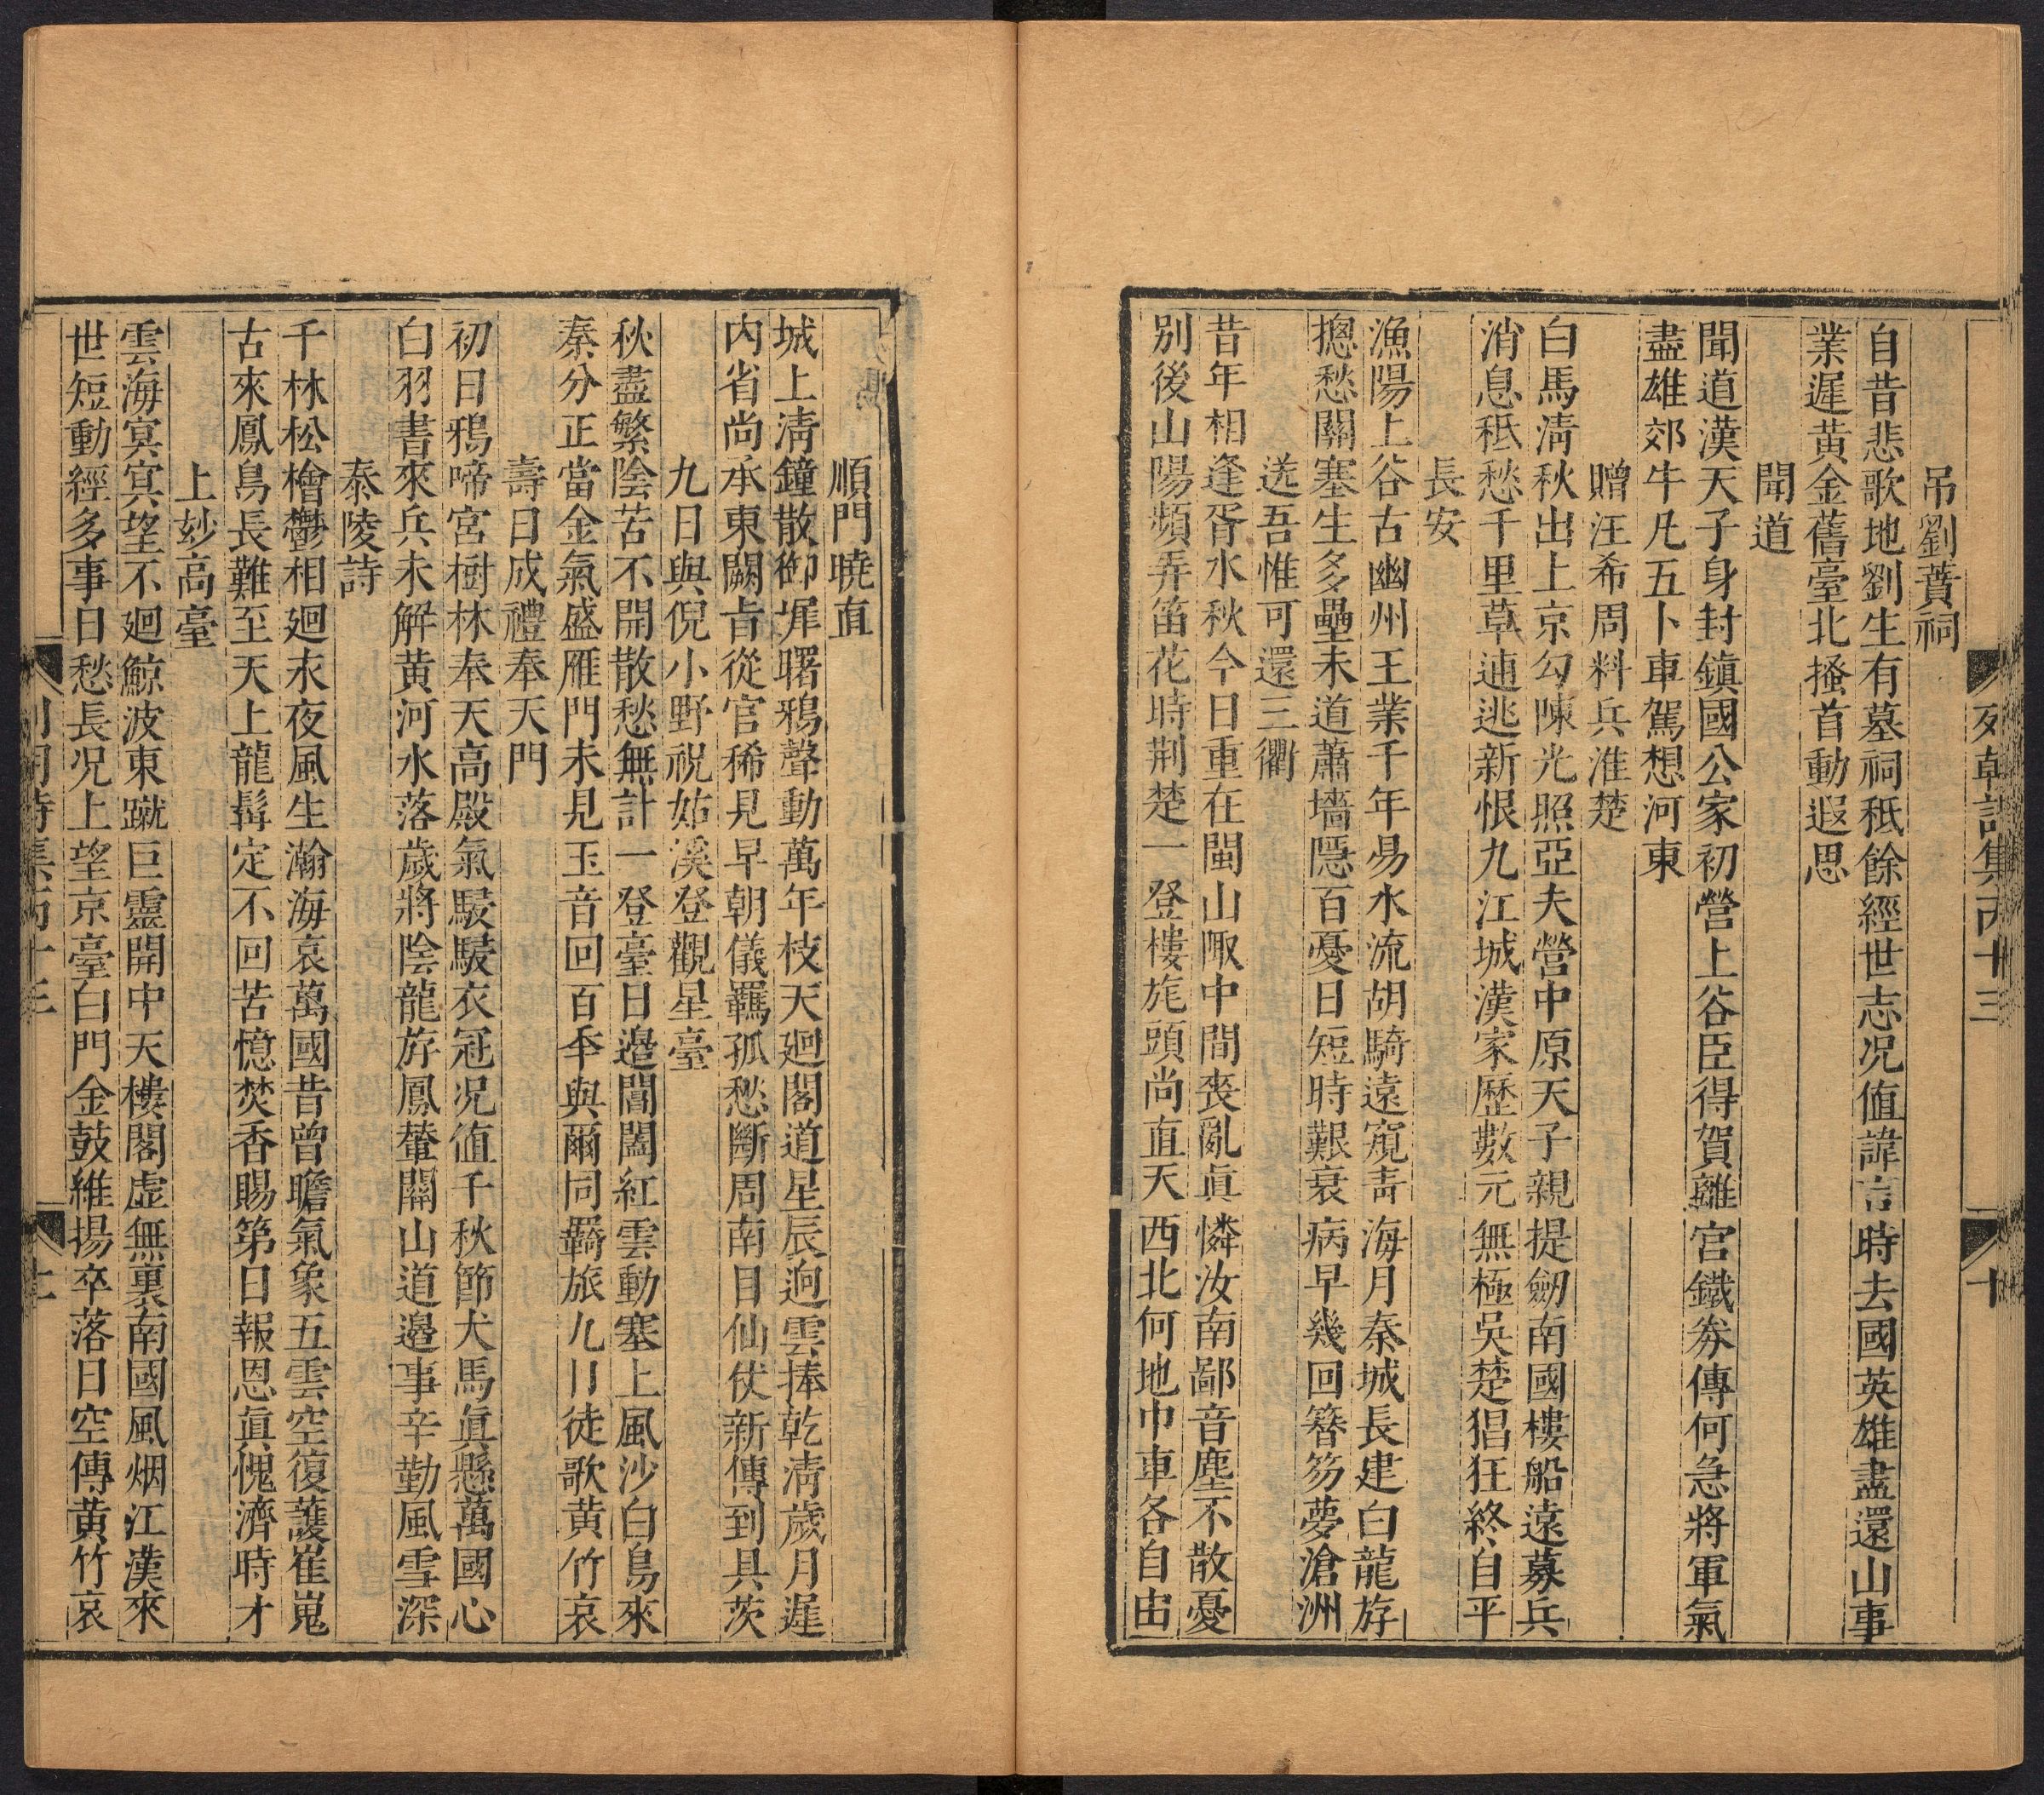 列朝詩集丙十三
十
吊劉蕡祠
自昔悲歌地劉生有墓祠秪餘經世志況値諱言時去國英雄盡還山事
業遲黄金舊臺北搔首動遐思
聞道
聞道漢天子身封鎮國公家初營上谷臣得賀離宮鐵券傳何急將軍氣
盡雄郊牛凡五卜車駕想河東
贈汪希周料兵淮楚
白馬淸秋出上京勾陳光照亞夫營中原天子親提劒南國樓船遠募兵
消息秪愁千里草逋逃新恨九江城漢家歷數元無極吳楚猖狂終自平
長安
漁陽上谷古幽州王業千年易水流胡騎遠窺靑海月秦城長建白龍斿
摠愁關塞生多壘未道蕭墻隱百憂日短時艱衰病早幾回簪笏夢滄洲
送吾惟可還三衢
昔年相逢胥水秋今日重在閩山陬中間喪亂眞憐汝南鄙音塵不散憂
別後山陽頻弄笛花時荆楚一登樓旄頭尚直天西北何地巾車各自由
順門曉直
城上淸鐘散御墀曙鴉聲動萬年枝天廻閣道星辰逈雲捧乾淸歲月遲
内省尚承東闕旨從官稀見早朝儀羈孤愁斷周南目仙仗新傳到具茨
九日與倪小野祝姑溪登觀星臺
秋盡繁陰苦不開散愁無計一登臺日邊閶闔紅雲動塞上風沙白鳥來
秦分正當金氣盛雁門未見玉音回百年與爾同羈旅九日徒歌黄竹哀
壽日成禮奉天門
初日鴉啼宮樹林奉天高殿氣駸駸衣冠況値千秋節犬馬眞懸萬國心
白羽書來兵未解黄河水落歲將陰龍斿鳳輦關山道邊事辛勤風雪深
泰陵詩
千林松檜鬱相廻永夜風生瀚海哀萬國昔曾瞻氣象五雲空復護崔嵬
古來鳳鳥長難至天上龍髯定不回苦憶焚香賜第日報恩眞愧濟時才
上妙高臺
雲海冥冥望不廻鯨波東蹴巨靈開中天樓閣虛無裏南國風烟江漢來
世短動經多事日愁長況上望京臺白門金鼓維揚卒落日空傳黄竹哀